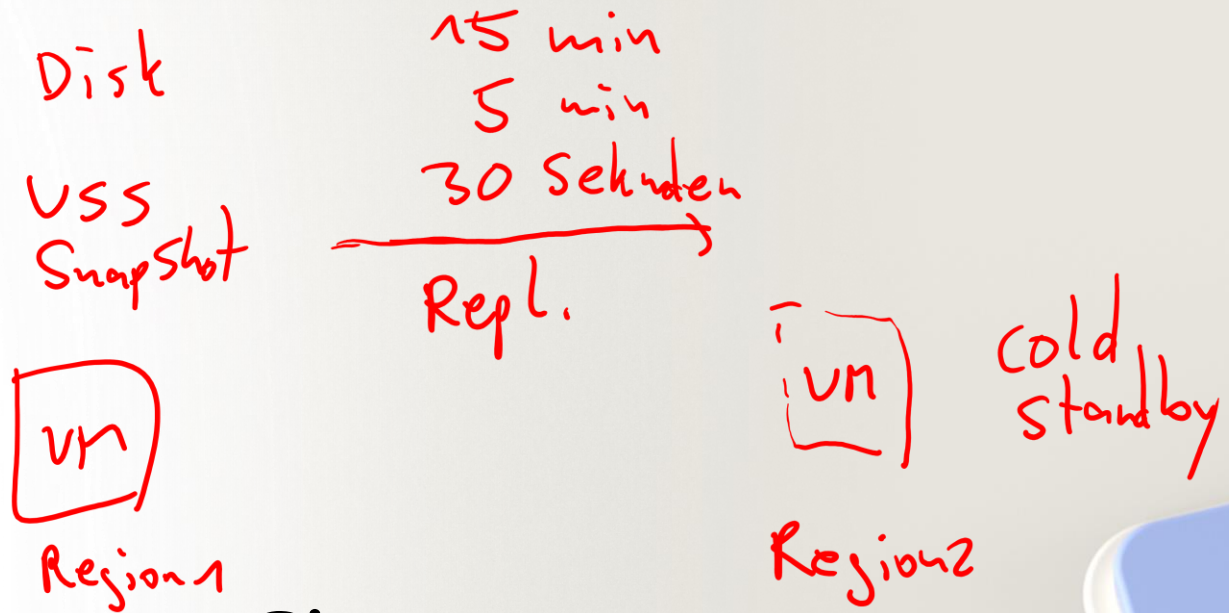 Disk
VSS
Snapshot
15 min
5 min
30 Sekunden
Repl.
VM
Region1
VM
cold
standby
Region2